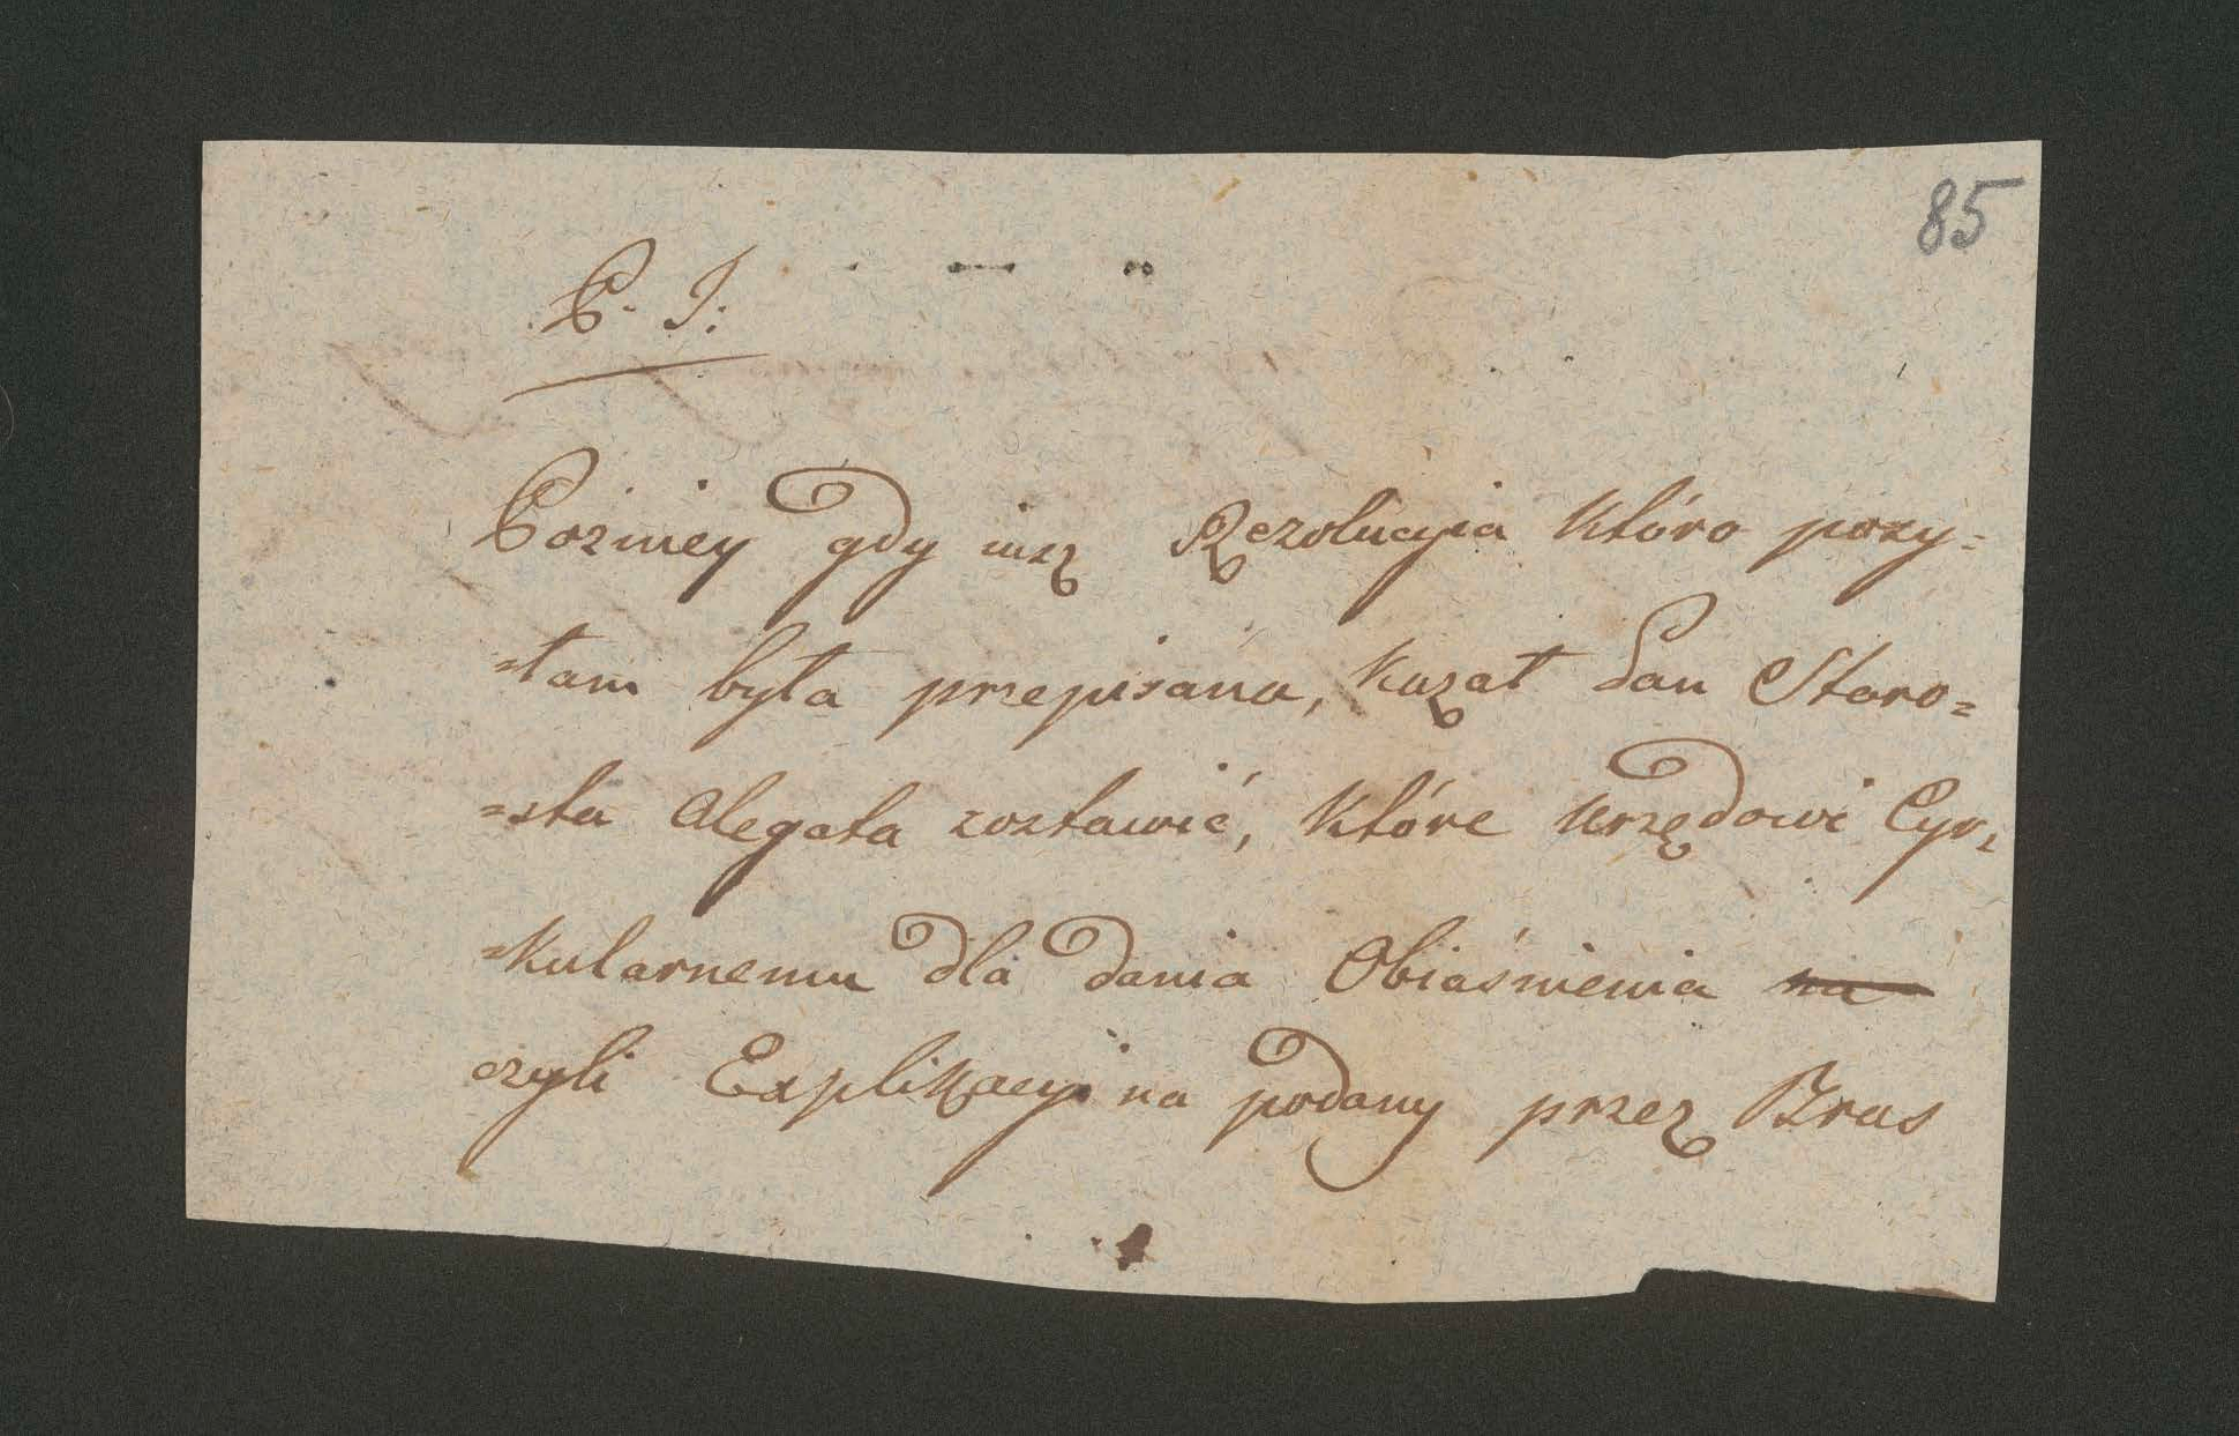 85
P. I:
Pozniey gdy iuz Rezolucyia Któro pozy=
=łam była przepisana, Kazał Pan Staro=
=sta Alegata zostawić, Które Urzędowi Cyr=
=kularnemu dla dania Obiaśnienia na
czyli Explikacyi na podany przez Bras